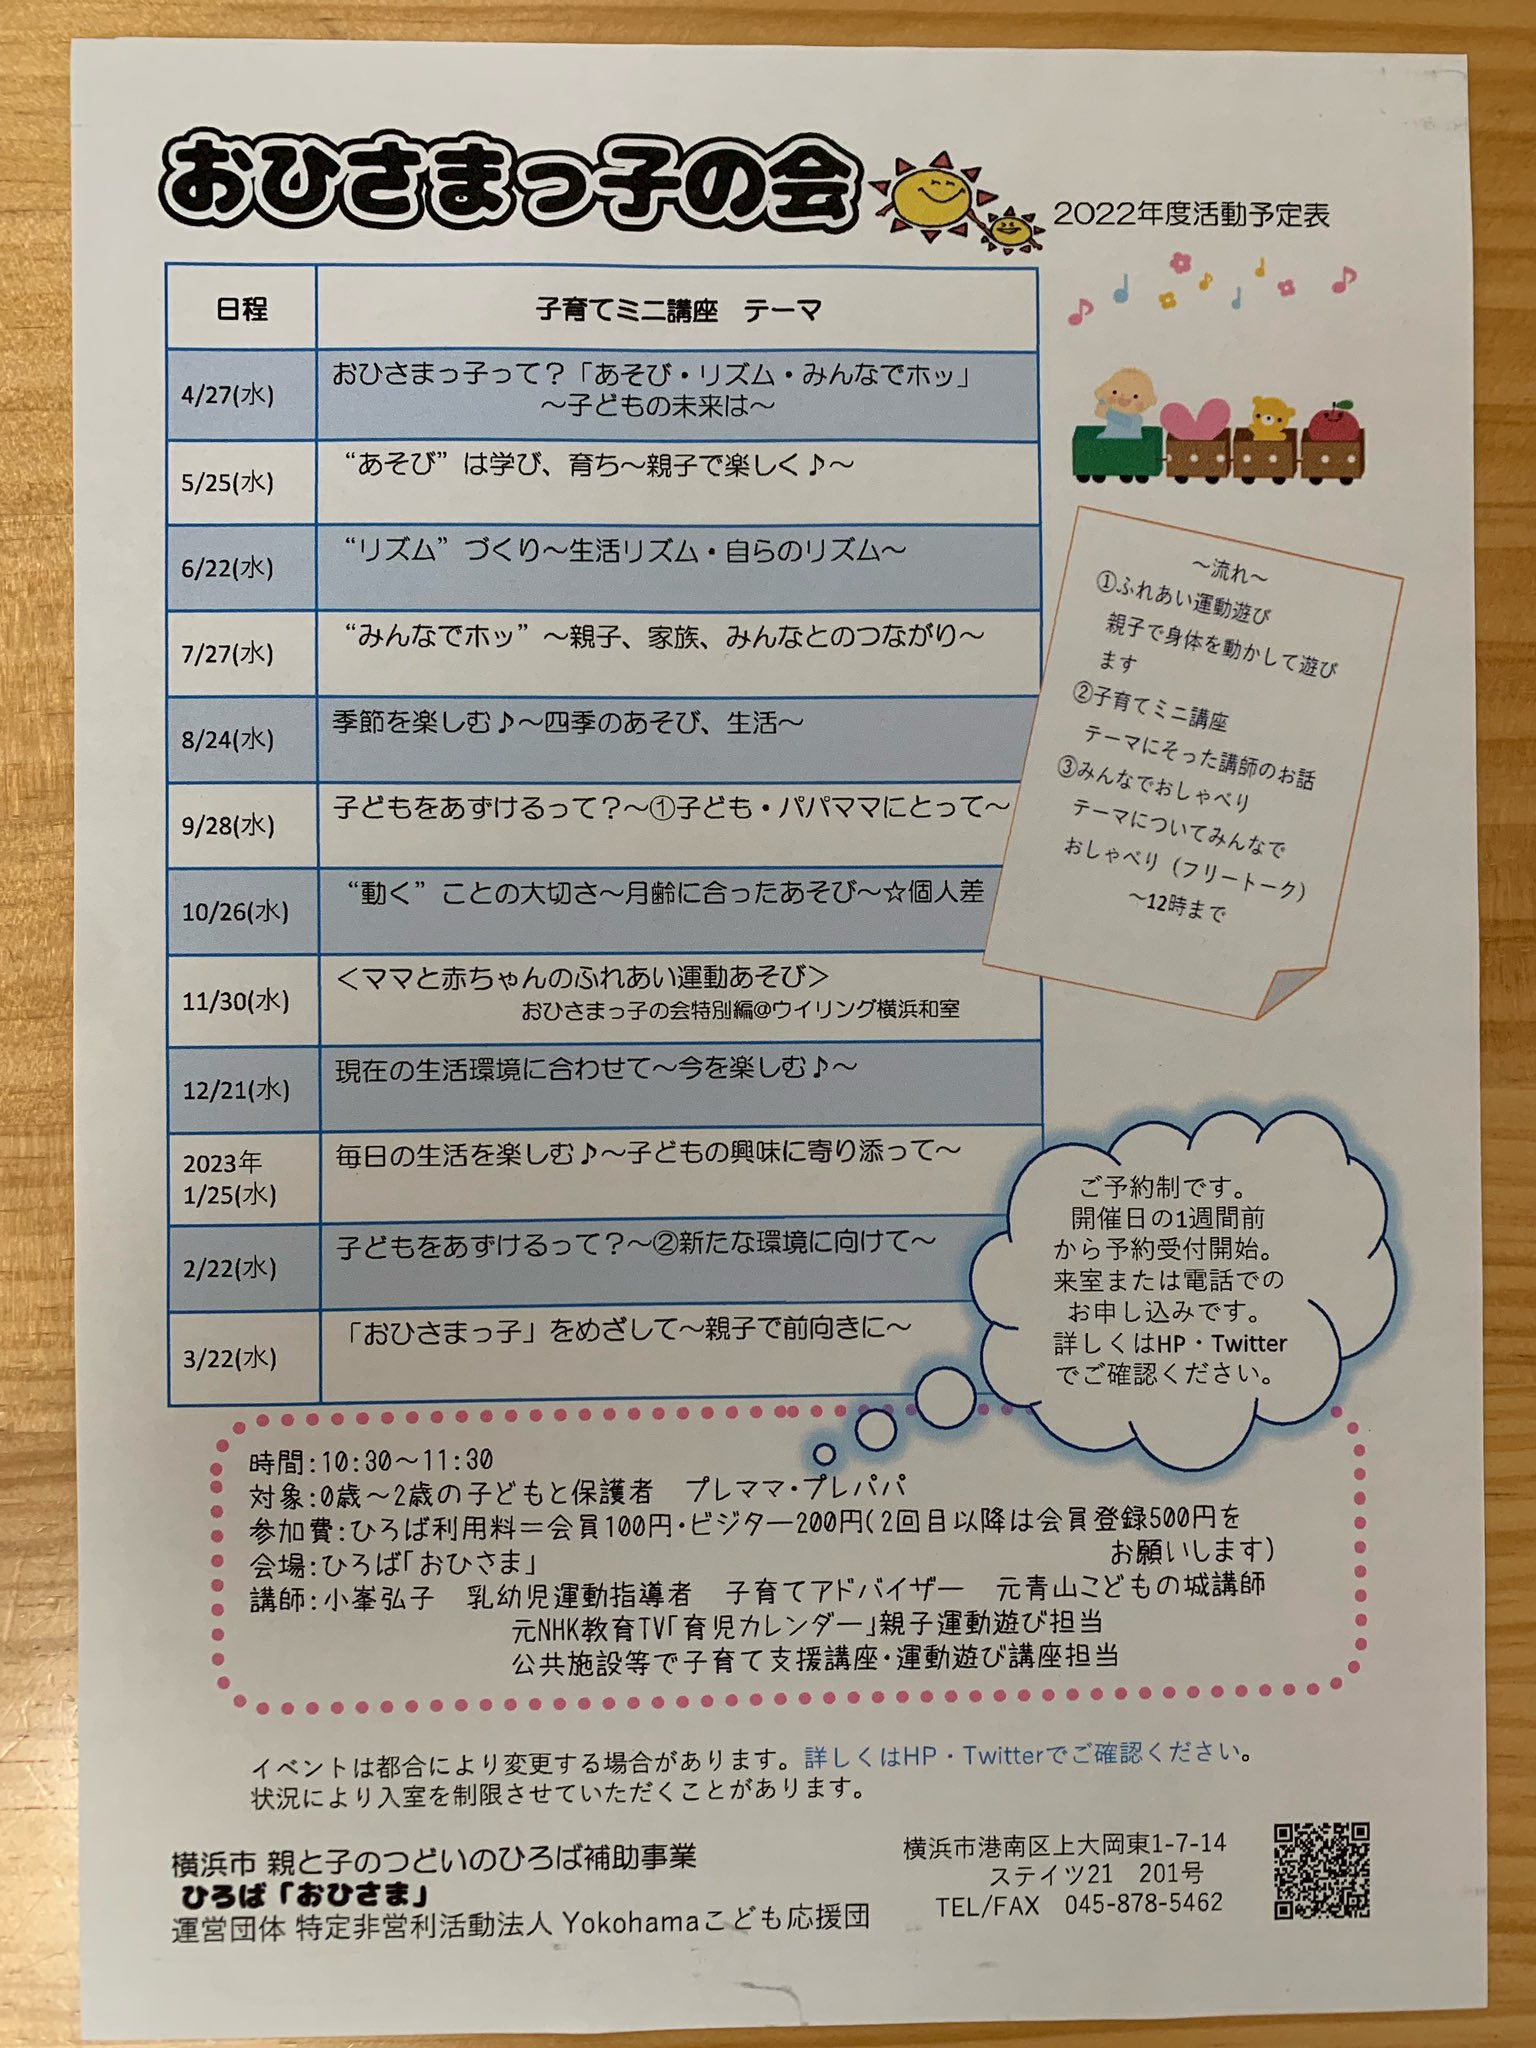 おひさまっ子の会
2022年度活動予定表
日程 子育てミニ講座　テーマ
4/27(水) おひさまっ子って？「あそび・リズム・みんなでホッ」
～子どもの未来は～
5/25(水) “あそび”は学び、育ち～親子で楽しく♪～
6/22(水) “リズム”づくり～生活リズム・自らのリズム～
7/27(水) “みんなでホッ”～親子、家族、みんなとのつながり～
8/24(水) 季節を楽しむ♪～四季のあそび、生活～
9/28(水) 子どもをあずけるって？～①子ども・パパママにとって～
10/26(水) “動く”ことの大切さ～月齢に合ったあそび～☆個人差
11/30(水) ＜ママと赤ちゃんのふれあい運動あそび＞
おひさまっ子の会特別編@ウイリング横浜和室
12/21(水) 現在の生活環境に合わせて～今を楽しむ♪～
2023年
1/25(水) 毎日の生活を楽しむ♪～子どもの興味に寄り添って～
2/22(水) 子どもをあずけるって？～②新たな環境に向けて～
3/22(水) 「おひさまっ子」をめざして～親子で前向きに～
～流れ～
①ふれあい運動遊び
親子で身体を動かして遊び
ます
②子育てミニ講座
テーマにそった講師のお話
③みんなでおしゃべり
テーマについてみんなで
おしゃべり（フリートーク）
～12時まで
ご予約制です。
開催日の1週間前
から予約受付開始。
来室または電話での
お申し込みです。
詳しくはHP・Twitter
でご確認ください。
時間:10:30～11:30
対象:0歳～2歳の子どもと保護者　プレママ・プレパパ
参加費:ひろば利用料＝会員100円・ビジター200円(2回目以降は会員登録500円を
お願いします)
会場:ひろば「おひさま」
講師:小峯弘子　乳幼児運動指導者　子育てアドバイザー　元青山こどもの城講師
元NHK教育TV「育児カレンダー」親子運動遊び担当
公共施設等で子育て支援講座・運動遊び講座担当
イベントは都合により変更する場合があります。詳しくはHP・Twitterでご確認ください。
状況により入室を制限させていただくことがあります。
横浜市 親と子のつどいのひろば補助事業
ひろば「おひさま」
運営団体 特定非営利活動法人 Yokohamaこども応援団
横浜市港南区上大岡東1-7-14
ステイツ21　201号
TEL/FAX　045-878-5462